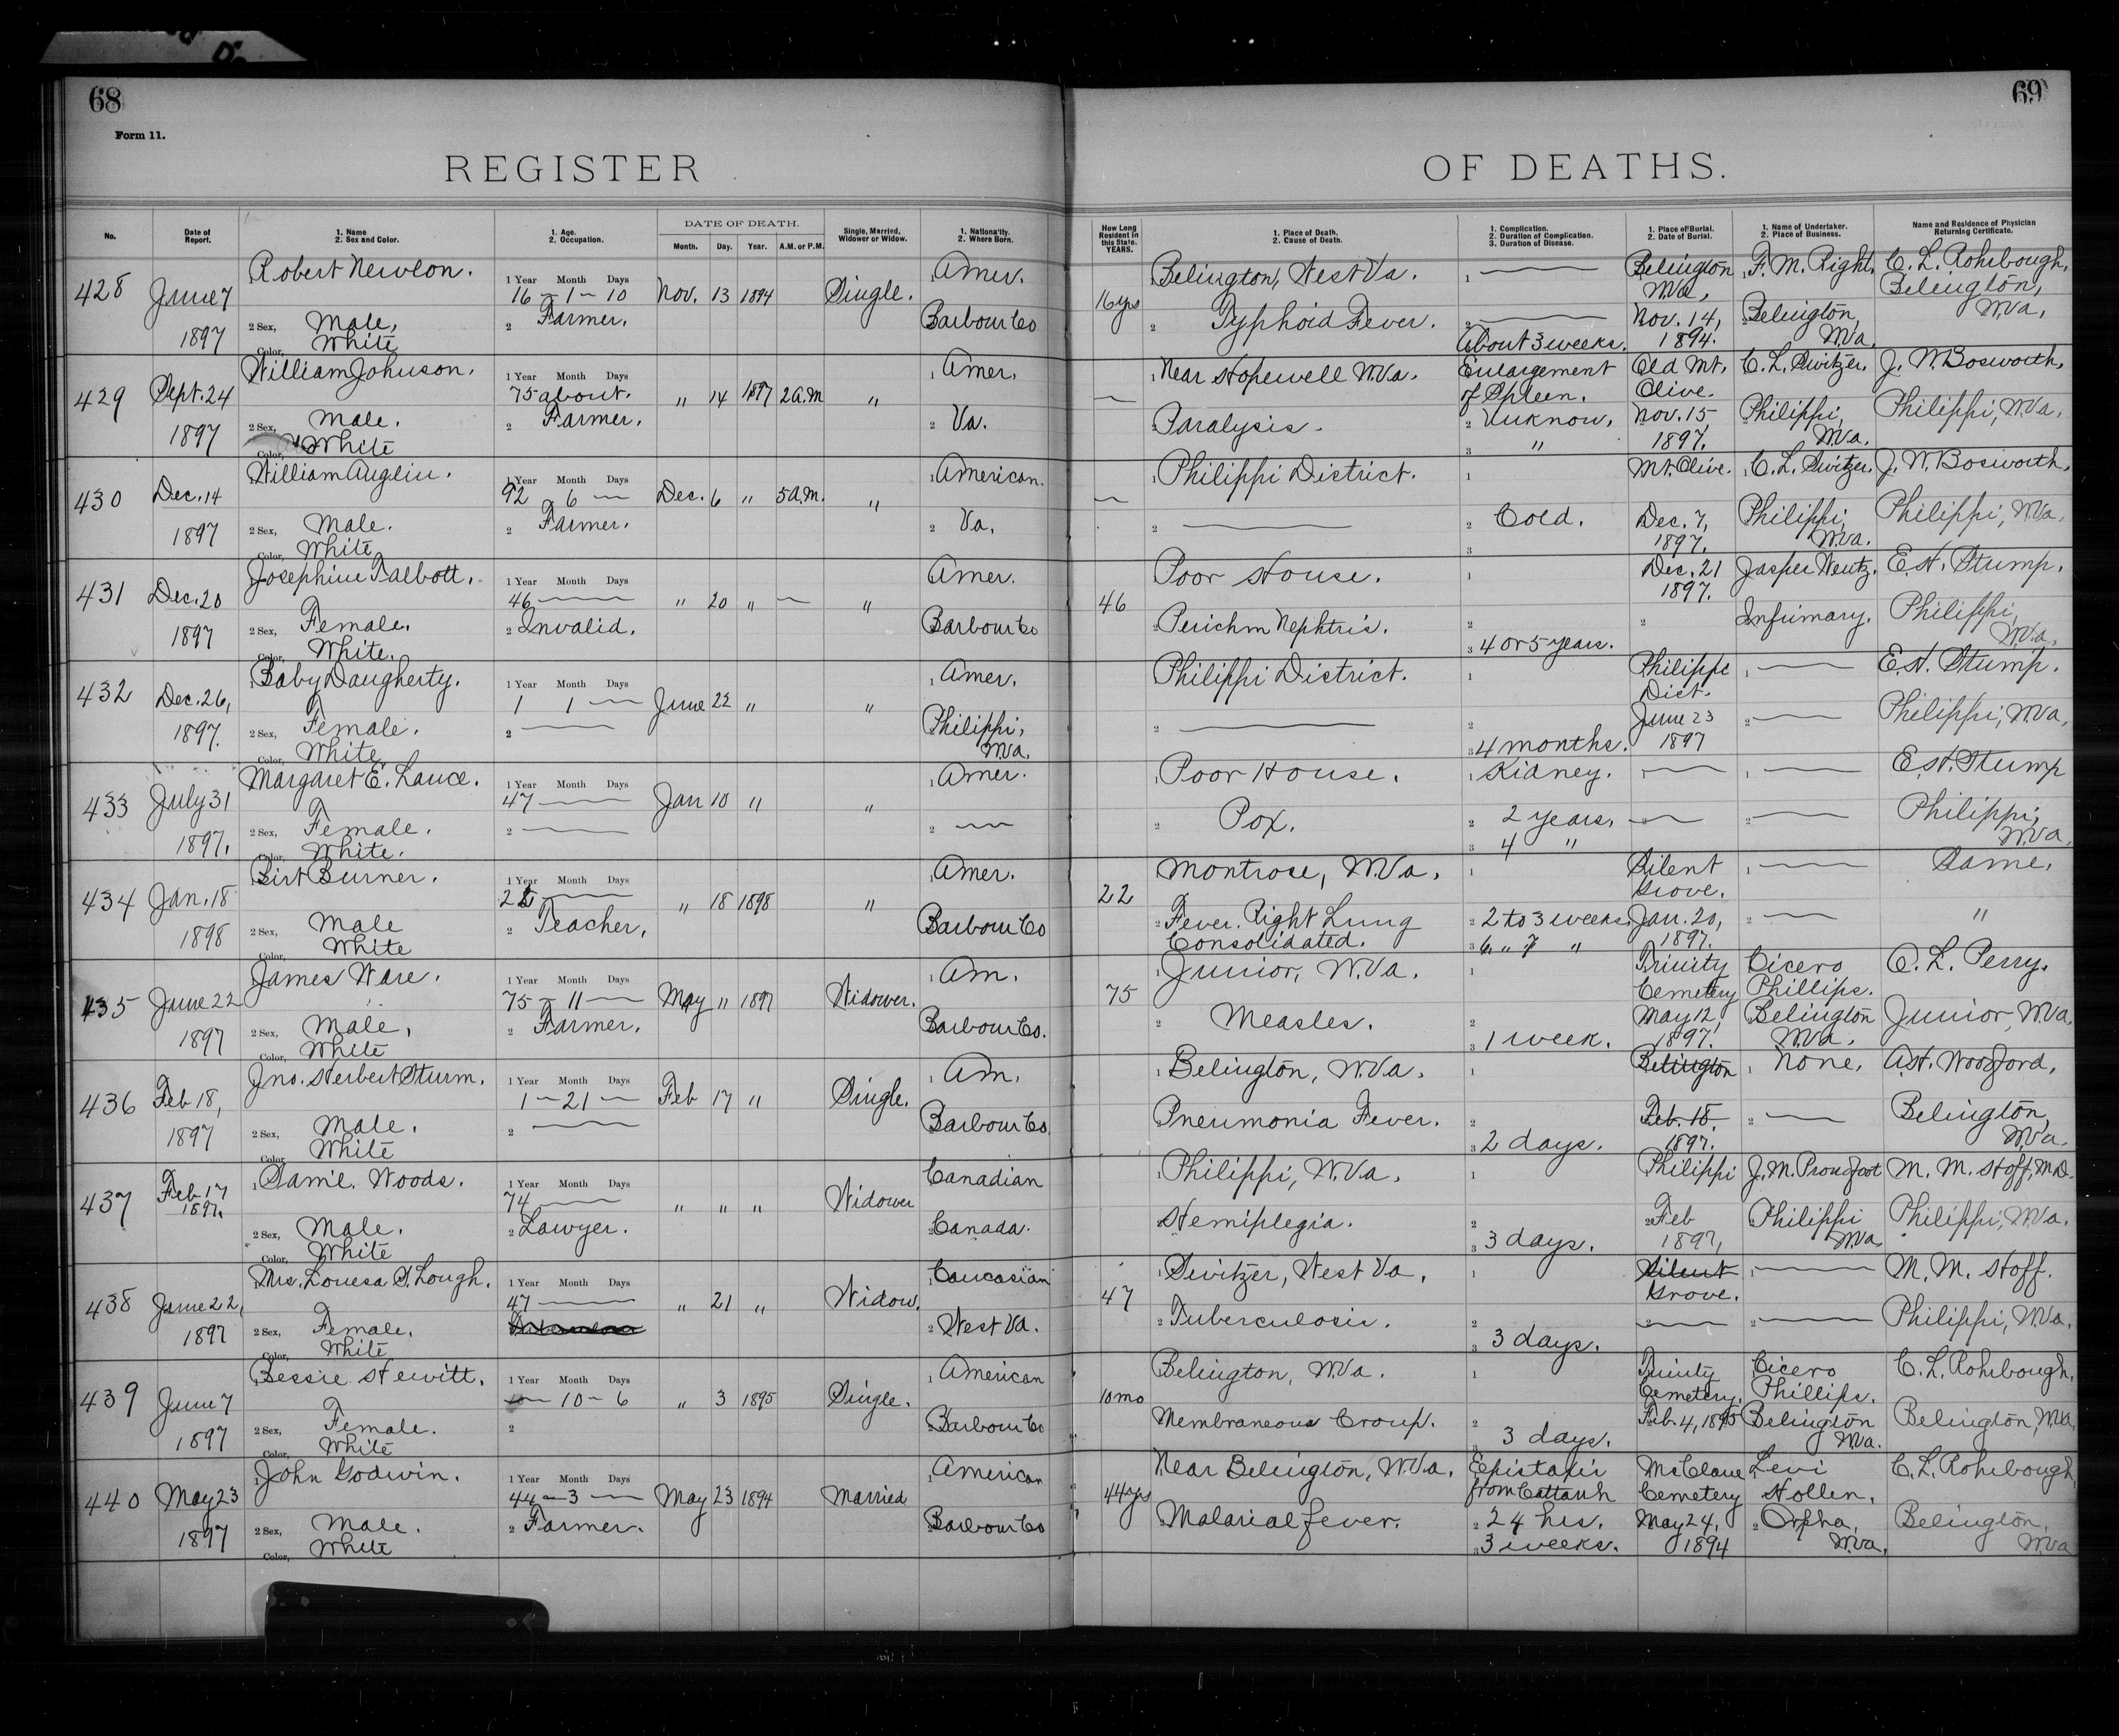 68
69
Form 11.
REGISTER OF DEATHS.
No. | Date of Report. | 1. Name 2. Sex and Color. | 1. Age. 2. Occupation. | DATE OF DEATH. Month. Day. Year. A.M. or P.M. | Single, Married, Widower or Widow. | 1. Nationality. 2. Where Born. | How Long Resident in this State. YEARS. | 1. Place of Death. 2. Cause of Death. | 1. Complication. 2. Duration of Complication. 3. Duration of Disease. | 1. Place of Burial. 2. Date of Burial. | 1. Name of Undertaker. 2. Place of Business. | Name and Residence of Physician Returning Certificate.
428 | June 7 1897 | Robert Newlon. 2 Sex, Male, Color, White | 1 Year Month Days 16 – 1 – 10 2 Farmer. | Nov. 13 1894 | Single. | 1 Amer. Barbour Co | 16 yrs | Belington, West Va. 2 Typhoid Fever. | 1 — 2 — About 3 weeks. | Belington W.Va, Nov. 14, 1894. | 1 F. M. Right, 2 Belington, W.Va. | C. L. Rohrbough, Belington, W.Va,
429 | Sept. 24 1897 | William Johnson. 2 Sex, Male. Color, White | 1 Year Month Days 75 about. 2 Farmer. | " 14 1897 2 A.M | " | 1 Amer, 2 Va. | — | 1 Near Hopewell W.Va. 2 Paralysis. | Enlargement of Spleen. 2 Unknow. 3 " | Old Mt. Olive. Nov. 15 1897. | C. L. Switzer, Philippi, W.Va. | J. W. Bosworth, Philippi, W.Va.
430 | Dec. 14 1897 | William Auglin. 2 Sex, Male. Color, White | 1 Year Month Days 92 6 — 2 Farmer. | Dec. 6 " 5 A.M. | " | 1 American. 2 Va, | — | 1 Philippi District. 2 — | 1 2 Cold. 3 | Mt. Olive. Dec. 7, 1897. | 1 C. L. Switzer. Philippi, W.Va. | J. W. Bosworth, Philippi, W.Va.
431 | Dec. 20 1897 | Josephine Talbott. 2 Sex, Female. Color, White. | 1 Year Month Days 46 — 2 Invalid. | " 20 " — | " | Amer. Barbour Co | 46 | Poor House. 2 Perichm Nephtris. | 1 2 3 4 or 5 years. | Dec. 21 1897. 2 | Jasper Wentz. Infirmary. | E. H. Stump. Philippi, W.Va.
432 | Dec. 26, 1897. | 1 Baby Daugherty. 2 Sex, Female. Color, White, | 1 Year Month Days 1 1 — 2 — | June 22 " | " | 1 Amer. 2 Philippi, W.Va. | Philippi District. 2 — | 1 2 3 4 months. | Philippi Dict. June 23 1897 | 1 — 2 — | E. H. Stump. Philippi, W.Va,
433 | July 31 1897. | Margaret E. Lance. 2 Sex, Female. Color, White. | 1 Year Month Days 47 — 2 — | Jan 10 " | " | 1 Amer. 2 — | 1 Poor House. 2 Pox. | 1 Kidney. 2 2 years, 3 4 " | 1 — 2 — | 1 — 2 — | E. H. Stump Philippi, W.Va.
434 | Jan. 18 1898 | 1 Birt Burner. 2 Sex, Male Color, White | 1 Year Month Days 22 — 2 Teacher, | " 18 1898 | " | 1 Amer. Barbour Co | 22 | Montrose, W.Va. 2 Fever. Right Lung Consolidated. | 1 2 2 to 3 weeks, 3 6 " 7 " | Silent Grove. Jan. 20, 1897. | 1 — 2 — | Same, "
435 | June 22 1897 | James Ware. 2 Sex, Male, Color, White | 1 Year Month Days 75 – 11 — 2 Farmer. | May " 1897 | Widower. | 1 Am. Barbour Co. | 75 | 1 Junior, W.Va. 2 Measles. | 1 2 3 1 week. | Trinity Cemetery May 12, 1897. | Cicero Phillips. 2 Belington W.Va. | O. L. Perry. Junior, W.Va,
436 | Feb 18, 1897 | Jno. Herbert Sturm. 2 Sex, Male. Color, White | 1 Year Month Days 1 – 21 — 2 — | Feb 17 " | Single. | 1 Am. Barbour Co. | 1 Belington, W.Va. Pneumonia Fever. | 1 2 3 2 days. | Belington Feb. 18. 1897. | 1 None. 2 — | A. H. Woodford, Belington, W.Va.
437 | Feb 17 1897. | 1 Saml. Woods. 2 Sex, Male. Color, White | 1 Year Month Days 74 — 2 Lawyer. | " " " | Widower | Canadian 2 Canada. | 1 Philippi, W.Va. 2 Hemiplegia. | 1 2 3 3 days. | Philippi 2 Feb 1897, | J. M. Proudfoot Philippi W.Va | M. M. Hoff, M.D. Philippi, W.Va.
438 | June 22, 1897 | Mrs. Louesa S. Lough. 2 Sex, Female. Color, White | 1 Year Month Days 47 — | " 21 " | Widow. | 1 Caucasian 2 West Va. | 47 | 1 Switzer, West Va. 2 Tuberculosis. | 1 2 3 3 days. | Silent Grove. 2 — | 1 — 2 — | M. M. Hoff. Philippi, W.Va.
439 | June 7 1897 | 1 Bessie Hewitt. 2 Sex, Female. Color, White | 1 Year Month Days — 10 – 6 2 | " 3 1895 | Single. | 1 American 2 Barbour Co | 10 mo | Belington, W.Va. Membraneous Croup. | 1 2 3 days. | Trinity Cemetery. Feb. 4, 1895 | Cicero Phillips. Belington W.Va. | C. L. Rohrbough, Belington, W.Va.
440 | May 23 1897 | 1 John Godwin. 2 Sex, Male. Color, White | 1 Year Month Days 44 – 3 — 2 Farmer. | May 23 1894 | Married | 1 American 2 Barbour Co | 44 yrs | Near Belington, W.Va. 2 Malarial fever. | Epistaxis from Cattarrh 2 24 hrs. 3 3 weeks. | McClane Cemetery May 24, 1894 | Levi Hollen, 2 Orpha, W.Va. | C. L. Rohrbough, Belington, W.Va